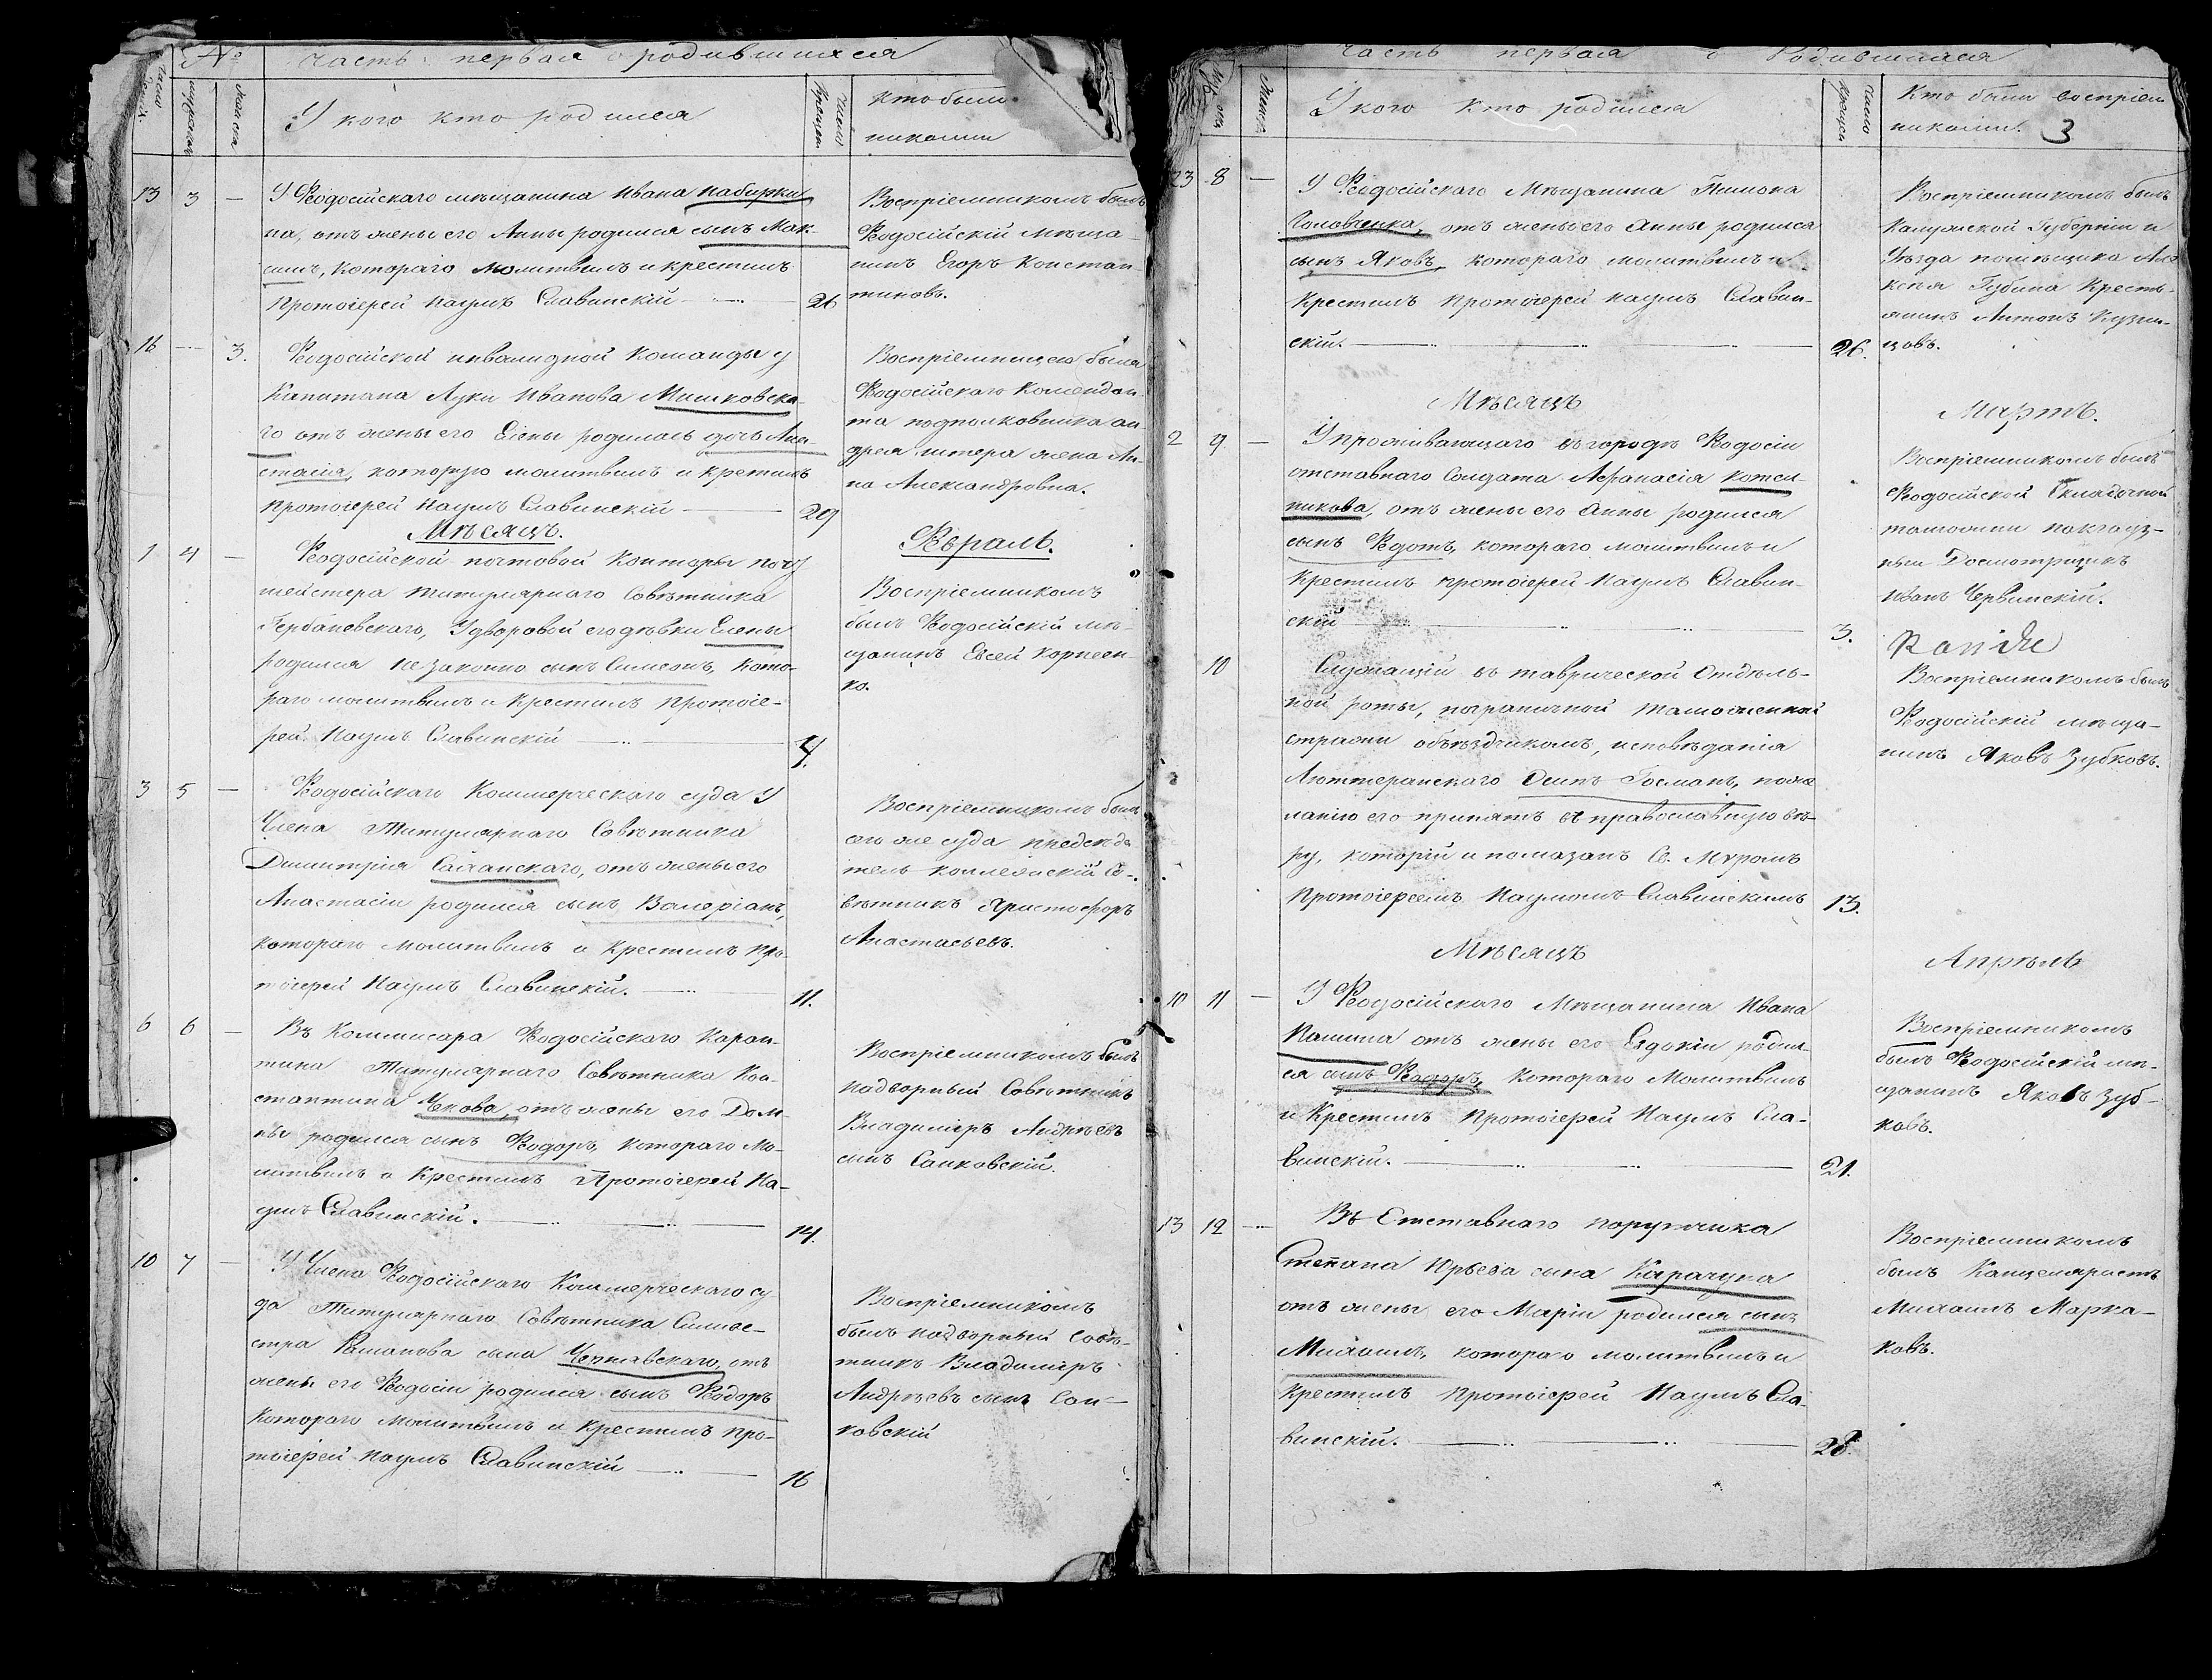 № Часть первая о родившихся
Числа рожд.
мужеска
женска
У кого кто родился
Числа крещен.
Кто были
никами
13 3 —
У Феодосійскаго мѣщанина Ивана Набирки-
на, отъ жены его Анны родился сынъ Мак-
симъ, котораго молитвилъ и крестилъ
Протоіерей Наумъ Славинскій 26
Воспріемникомъ былъ
Феодосійскій мѣща-
нинъ Егоръ Констан-
тиновъ.
16 — 3.
Феодосійской инвалидной команды у
Капитана Луки Иванова Мишковска-
го отъ жены его Елены родилась дочь Ана-
стасія, которую молитвилъ и кретилъ
протоіерей Наумъ Славинскій 29
Воспріемницею была
Феодосійскаго Комендан-
та подполковника ан-
дрея литера жена Ан-
на Александровна.
Мѣсяцъ. Февраль.
1 4 —
Феодосійской почтовой Конторы почт
мейстера титулярнаго Совѣтника
Гербаневскаго, У дворовой его дѣвки Елены
родился незаконно сынъ Симеонъ, кото-
раго молитвилъ и крестилъ протоіе-
рей Наумъ Славинскій 4.
Воспріемникомъ
былъ Феодосійскій мѣ-
щанинъ Евсей Корнеен-
ко.
3 5 —
Феодосійскаго Коммерческаго суда У
Члена Титулярнаго Совѣтника
Димитрія Салтанскаго, отъ жены его
Анастасіи родился сынъ Валеріанъ,
котораго молитвилъ и крестилъ про-
тоіерей Наумъ Славинскій. 11.
Воспріемникомъ былъ
сего же суда предсѣда
тель коллежскій Со-
вѣтникъ Христофоръ
Анастасьевъ.
6 6 —
Въ Коммисара Феодосійскаго Каран-
тина Титулярнаго Совѣтника Кон-
стантина Чекова, отъ жены его Дом-
ны родился сынъ Феодоръ, котораго Мо-
литвилъ и Крестилъ Протоіерей На-
умъ Славинскій. 14.
Воспріемникомъ былъ
Надворный Совѣтникъ
Владиміръ Андреевъ
сынъ Санковскій.
10 7 —
У Члена Феодосійскаго Коммерческаго су
да Титулярнаго Совѣтника Сильве-
стра Романова сына Чернявскаго, отъ
жены его Феодосіи родился сынъ Феодоръ
котораго Молитвилъ и Крестилъ про-
тоіерей Наумъ Славинскій 16
Воспріемникомъ
былъ надворный совѣ-
тникъ Владиміръ
Андреевъ сынъ Сан-
ковскій
Часть первая о Родившихся
У кого кто родился
Число крещен.
Кто были воспріем
никами. 3
23 8 —
У Феодосійскаго Мѣщанина Пимона
Головченка, отъ жены его Анны родился
сынъ Яковъ, котораго молитвилъ и
крестилъ протоіерей Наумъ Славин-
скій. 26.
Воспріемникомъ былъ
Калужской Губерніи и
Уѣзда помѣщика Але
ксѣя Губина Кресть-
янинъ Антонъ Кузне-
цовъ.
Мѣсяцъ Мартъ.
2 9 —
У проживающаго въ городѣ Феодосіи
отставнаго Солдата Афанасія Котел-
никова, отъ жены его Анны родился
сынъ Федотъ, котораго молитвилъ и
крестилъ протоіерей Наумъ Славин-
скій 3.
Воспріемникомъ былъ
Феодосійской Складочной
таможни пакгауз-
ный Досмотрщикъ
Иванъ Червинскій.
10
Служащій въ таврической отдѣль-
ной роты, пограничной таможенной
стражи объѣздчикомъ, исповѣданія
Лютеранскаго Осипъ Госманъ, по же
ланію его принятъ въ православную вѣ-
ру, которій и помазанъ Св. Муромъ
Протоіереемъ Наумомъ Славинскимъ 13.
Воспріемникомъ былъ
Феодосійскій мѣща-
нинъ Яковъ Зубковъ.
Мѣсяцъ Апрѣль
10 11 —
У Феодосійскаго Мѣщанина Ивана
Калина отъ жены его Евдокіи родил-
ся сынъ Феодоръ, котораго Молитвилъ
и Крестилъ Протоіерей Наумъ Сла-
винскій. 21.
Воспріемникомъ
былъ Феодосійскій мѣ-
щанинъ Яковъ Зуб-
ковъ.
13 12 —
Въ Отставнаго поручика
Степана Юрьева сына Карачуна
отъ жены его Маріи родился сынъ
Михаилъ, котораго молитвилъ и
крестилъ Протоіерей Наумъ Сла-
винскій. 28.
Воспріемникомъ
былъ Канцеляристъ
Михаилъ Марка-
ковъ.